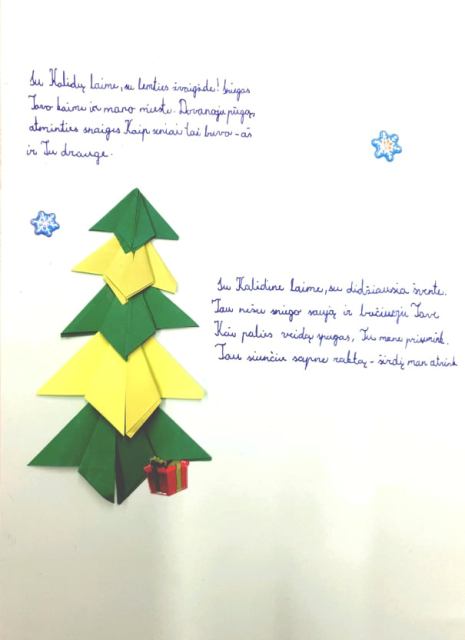 Su Kalėdų laime, su lemties žvaigžde! Sniegas
Tavo kaime ir mano mieste. Dovanoju pūgą,
atminties snaiges. Kaip seniai tai buvo - aš
ir Tu drauge.
Su Kalėdine laime, su didžiausia švente.
Tau nešu sniego saują ir bučiuoju Tave
Kai palies veidą spugas, Tu mane prisimink.
Tau siunčiu sapne raktą - širdį man atrink